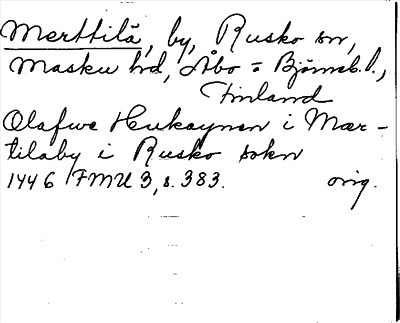 Merttilä, by, Rusko sn,
Masku hd, Åbo = Björneb. l.,
Finland
Olafwe Hukaynen i Mar-
tilaby i Rusko sokn
1446 FMU 3, s. 383. orig.